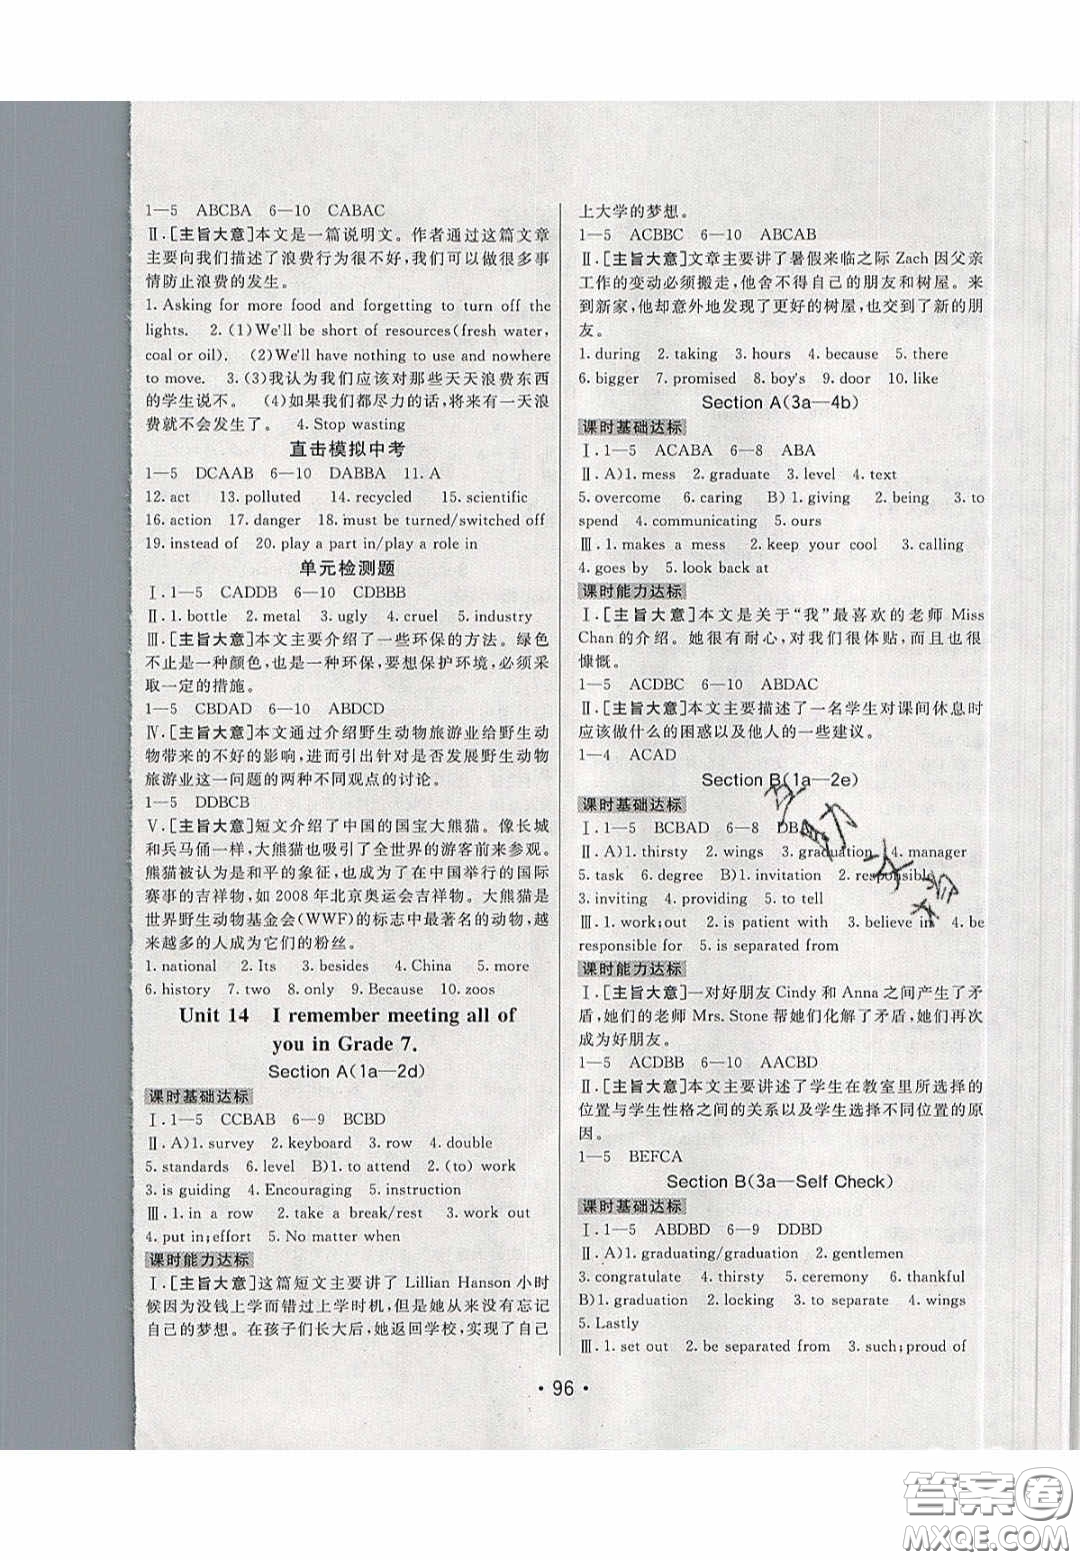 1—5 ABCBA 6—10 CABAC
Ⅱ.[主旨大意]本文是一篇说明文。作者通过这篇文章
主要向我们描述了浪费行为很不好,我们可以做很多事
情防止浪费的发生。
1. Asking for more food and forgetting to turn off the
lights. 2. (1)We'll be short of resources(fresh water,
coal or oil). (2)We'll have nothing to use and nowhere
to move. 3. (3)我认为我们应该对那些天天浪费东西
的学生说不。 (4)如果我们都尽力的话,将来有一天浪
费就不会发生了。 4. Stop wasting
直击模拟中考
1—5 DCAAB 6—10 DABBA 11. A
12. act 13. polluted 14. recycled 15. scientific
16. action 17. danger 18. must be turned/switched off
19. instead of 20. play a part in/play a role in
单元检测题
Ⅰ. 1—5 CADDB 6—10 CDBBB
Ⅱ. 1. bottle 2. metal 3. ugly 4. cruel 5. industry
Ⅲ.[主旨大意]本文主要介绍了一些环保的方法。绿色
不止是一种颜色,也是一种环保,要想保护环境,必须采
取一定的措施。
1—5 CBDAD 6—10 ABDCD
Ⅳ.[主旨大意]本文通过介绍野生动物旅游业给野生动
物带来的不好的影响,进而引出针对是否发展野生动物
旅游业这一问题的两种不同观点的讨论。
1—5 DDBCB
Ⅴ.[主旨大意]短文介绍了中国的国宝大熊猫。像长城
和兵马俑一样,大熊猫也吸引了全世界的游客前来参观。
熊猫被认为是和平的象征,也成为了在中国举行的国际
赛事的吉祥物,如 2008 年北京奥运会吉祥物。大熊猫是
世界野生动物基金会(WWF)的标志中最著名的动物,越
来越多的人成为它们的粉丝。
1. national 2. Its 3. besides 4. China 5. more
6. history 7. two 8. only 9. Because 10. zoos
Unit 14 I remember meeting all of
you in Grade 7.
Section A(1a—2d)
课时基础达标
Ⅰ. 1—5 CCBAB 6—9 BCBD
Ⅱ. A)1. survey 2. keyboard 3. row 4. double
5. standards 6. level B)1. to attend 2. (to) work
3. is guiding 4. Encouraging 5. instruction
Ⅲ. 1. in a row 2. take a break/rest 3. work out
4. put in;effort 5. No matter when
课时能力达标
Ⅰ.[主旨大意]这篇短文主要讲了 Lillian Hanson 小时
候因为没钱上学而错过上学时机,但是她从来没有忘记
自己的梦想。在孩子们长大后,她返回学校,实现了自己
上大学的梦想。
1—5 ACBBC 6—10 ABCAB
Ⅱ.[主旨大意]文章主要讲了暑假来临之际 Zach 因父亲
工作的变动必须搬走,他舍不得自己的朋友和树屋。来
到新家,他却意外地发现了更好的树屋,也交到了新的朋
友。
1. during 2. taking 3. hours 4. because 5. there
6. bigger 7. promised 8. boy's 9. door 10. like
Section A(3a—4b)
课时基础达标
Ⅰ. 1—5 ACABA 6—8 ABA
Ⅱ. A)1. mess 2. graduate 3. level 4. text
5. overcome 6. caring B)1. giving 2. being 3. to
spend 4. communicating 5. ours
Ⅲ. 1. makes a mess 2. keep your cool 3. calling
4. goes by 5. look back at
课时能力达标
Ⅰ.[主旨大意]本文是关于“我”最喜欢的老师 Miss
Chan 的介绍。她很有耐心,对我们很体贴,而且也很
慷慨。
1—5 ACDBC 6—10 ABDAC
Ⅱ.[主旨大意]本文主要描述了一名学生对课间休息时
应该做什么的困惑以及他人的一些建议。
1—4 ACAD
Section B(1a—2e)
课时基础达标
Ⅰ. 1—5 BCBAD 6—8 DBA
Ⅱ. A)1. thirsty 2. wings 3. graduation 4. manager
5. task 6. degree B)1. invitation 2. responsible
3. inviting 4. providing 5. to tell
Ⅲ. 1. work;out 2. is patient with 3. believe in 4. be
responsible for 5. is separated from
课时能力达标
Ⅰ.[主旨大意]一对好朋友 Cindy 和 Anna 之间产生了矛
盾,她们的老师 Mrs. Stone 帮她们化解了矛盾,她们再次
成为好朋友。
1—5 ACDBB 6—10 AACBD
Ⅱ.[主旨大意]本文主要讲述了学生在教室里所选择的
位置与学生性格之间的关系以及学生选择不同位置的原
因。
1—5 BEFCA
Section B(3a—Self Check)
课时基础达标
Ⅰ. 1—5 ABDBD 6—9 DDBD
Ⅱ. A)1. graduating/graduate 2. gentlemen
3. congratulate 4. thirsty 5. ceremony 6. thankful
B)1. graduation 2. locking 3. to separate 4. wings
5. Lastly
Ⅲ. 1. set out 2. be separated from 3. such;proud of
· 96 ·
答案圈
MXQE.COM